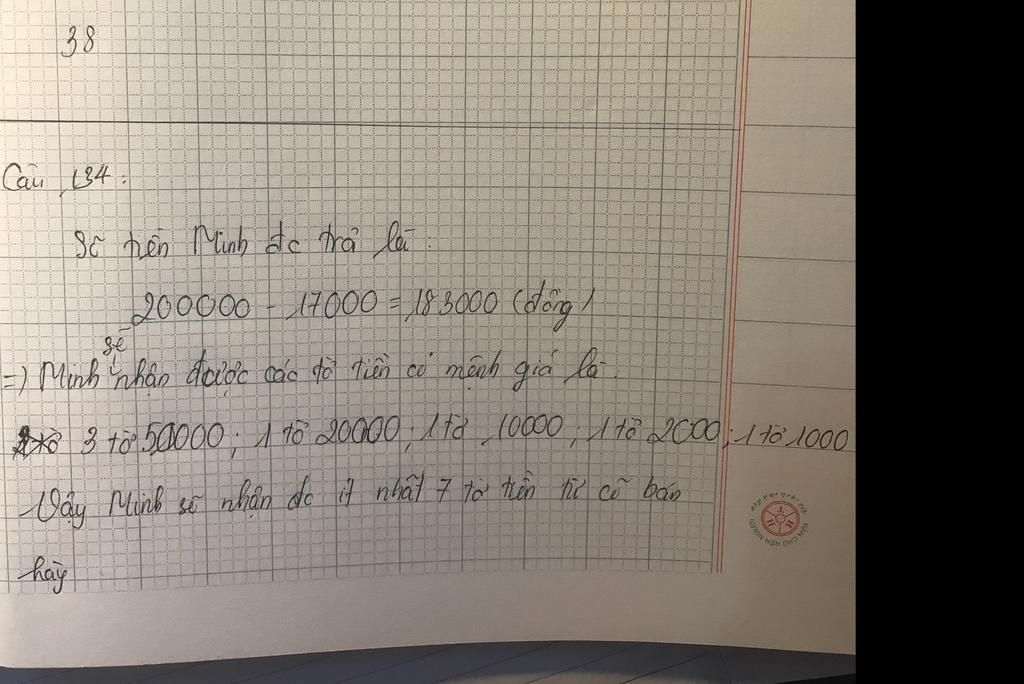 38
Câu 134:
Số tiền Minh đc trả là:
200000 - 17000 = 183000 (đồng)
sẽ
=) Minh nhận được các tờ tiền có mệnh giá là:
3 tờ 50000; 1 tờ 20000; 1 tờ 10000; 1 tờ 2000; 1 tờ 1000
Vậy Minh sẽ nhận đc ít nhất 7 tờ tiền từ cô bán
hày